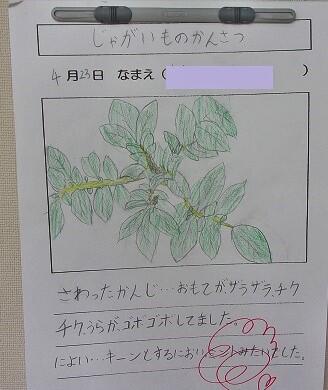 じゃがいものかんさつ
4月23日 なまえ( )
さわったかんじ…おもてが、ザラザラ、チク
チク、うらが、ゴボゴボしてました。
によい…キーンとするにおい ミントみたいでした。